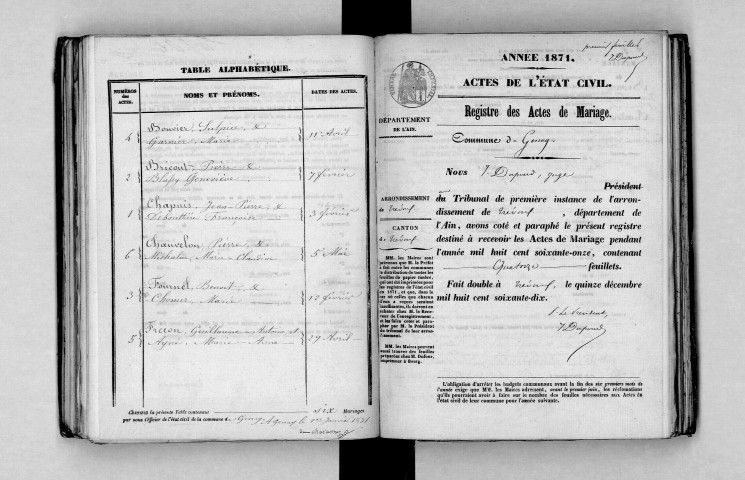 TABLE ALPHABÉTIQUE.
NUMÉROS des ACTES.
NOMS ET PRÉNOMS.
DATES DES ACTES.
4 Bouvier, Sulpice &
Garnier Marie
11 Avril
2 Bricout Pierre &
Geneviève
7 février
1 Chapuis, Jean Pierre &
Françoise
3 février
6 Chauvelon, Pierre &
Michalon Marie Claudine
5 Mai
3 Benoit &
Marie
12 février
5 Frecon, Guillaume Antoine et
Aymé Marie Anne
29 Avril
la présente Table contenant six Mariages
par nous Officier de l'état civil de la commune de Genay
premier feuillet
J Dupond
ANNÉE 1871.
ACTES DE L'ÉTAT CIVIL.
Registre des Actes de Mariage.
DÉPARTEMENT
DE L'AIN.
Commune de Genay
Nous J. Dupond, juge
Président
du Tribunal de première instance de l'arron-
dissement de Trévoux, département de
l'Ain, avons coté et paraphé le présent registre
destiné à recevoir les Actes de Mariage pendant
l'année mil huit cent soixante-onze, contenant
Quatorze feuillets.
Fait double à Trévoux, le quinze décembre
mil huit cent soixante-dix.
J Dupond
ARRONDISSEMENT
de Trévoux
CANTON
de Trévoux
MM. les Maires sont
prévenus que M. le Préfet
a fait entre les communes
la distribution de toutes les
feuilles de papier timbré,
qui ont été imprimées pour
les registres de l'état civil
en 1871, et que, dans le
cas où celles que chacun
d'eux a reçues seraient
insuffisantes, ils doivent en
acheter chez M. le Rece-
veur de l'enregistrement,
et les faire coter et para-
pher par M. le Président
du tribunal de leur arron-
dissement.
MM. les Maires peuvent
aussi trouver des feuilles
préparées chez M. Dufour,
imprimeur à Bourg.
L'obligation d'arrêter les budgets communaux avant la fin des six premiers mois de
l'année exige que MM. les Maires adressent, avant le premier juin, les réclamations
qu'ils pourraient avoir à faire sur le nombre des feuilles nécessaires aux Actes de
l'état civil de leur commune pour l'année suivante.